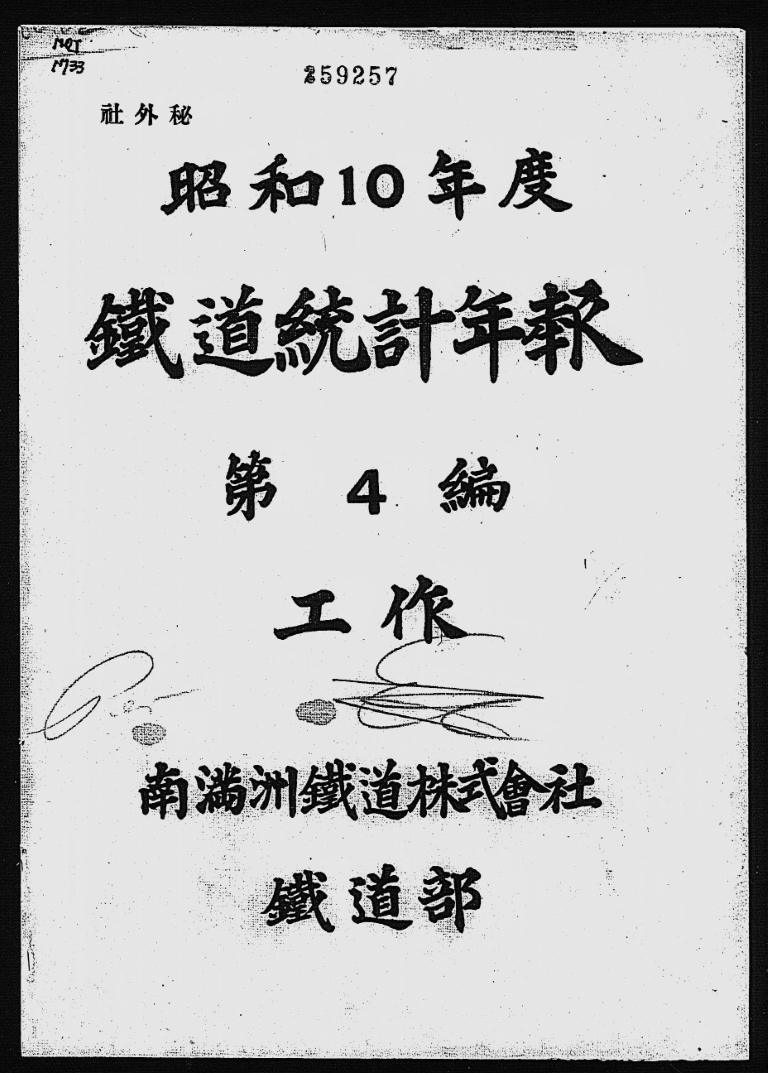 MOJ
M733
259257
社外秘
昭和10年度
鐵道統計年報
第4編
工作
南満洲鐵道株式會社
鐵道部